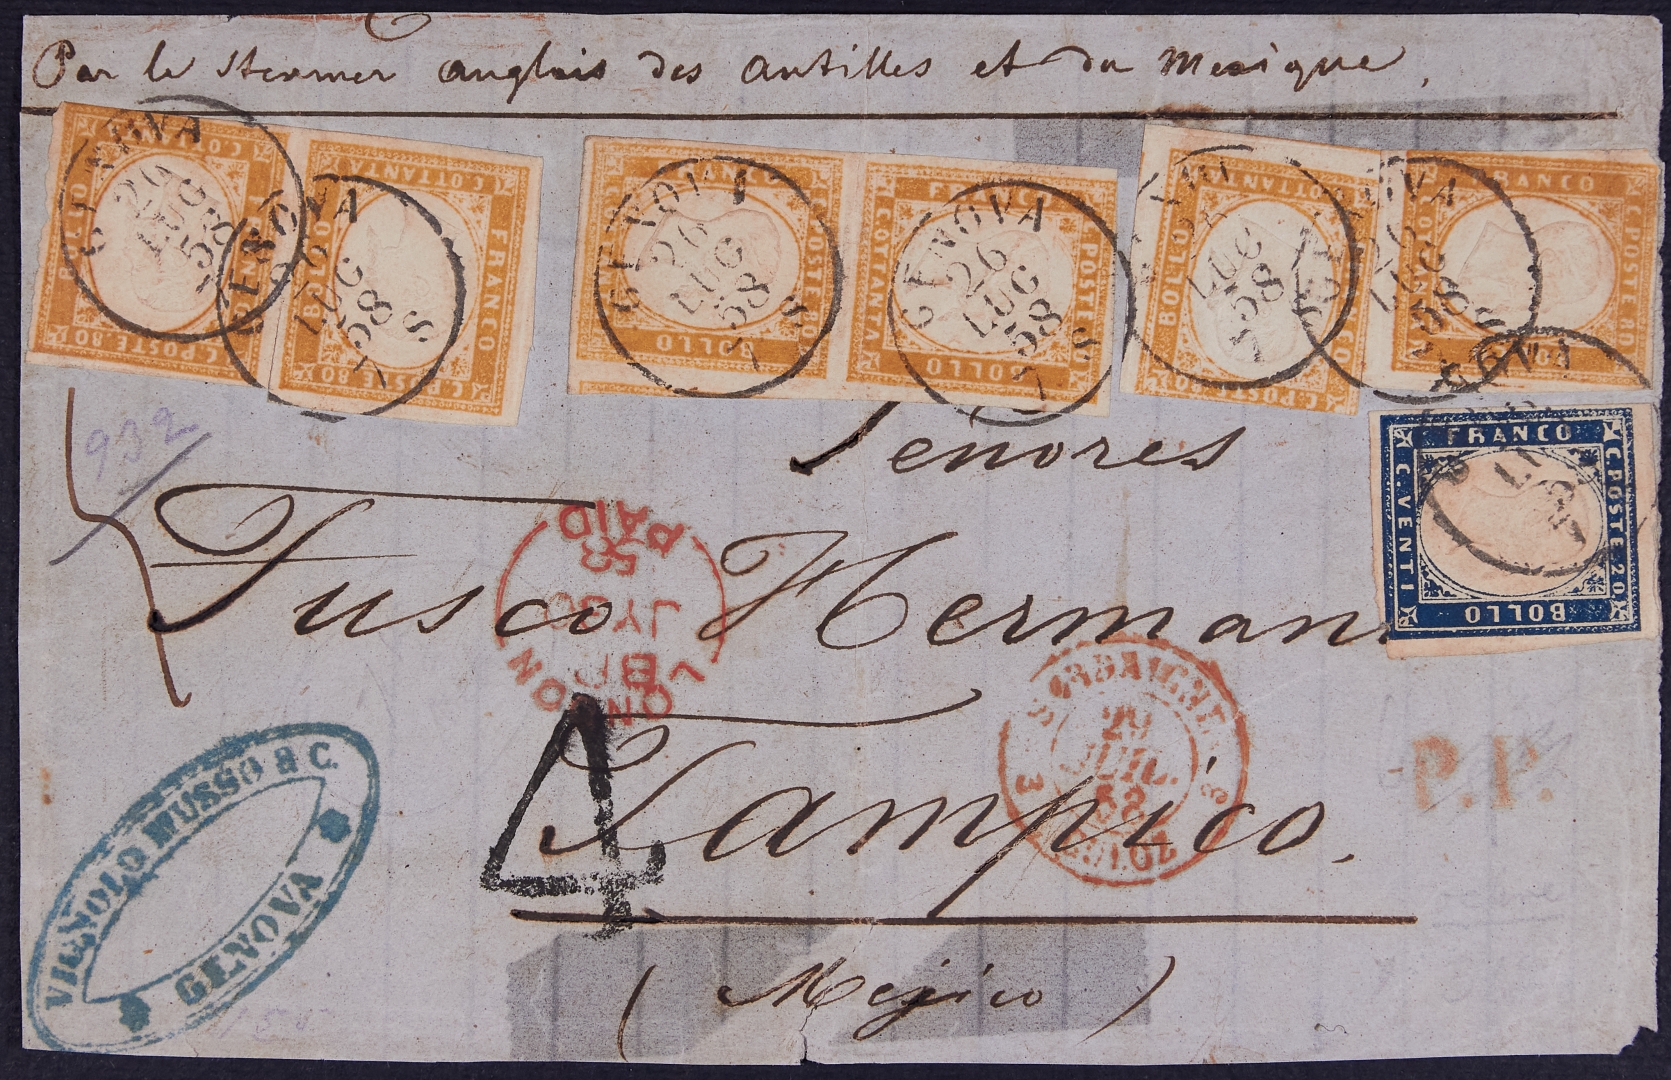 Par le Steamer anglais des Antilles et du Mexique,
GENOVA 26 LUG 58 7 S
C. OTTANTA BOLLO C. POSTE 80
GENOVA 26 LUG 58 7 S
C. OTTANTA FRANCO BOLLO C. POSTE 80
GENOVA 26 LUG 58 7 S
FRANCO C. POSTE 80 BOLLO
GENOVA 26 LUG 58 7 S
FRANCO C. POSTE 80 BOLLO C. OTTANTA
LUG 58 7
C. OTTANTA BOLLO FRANCO C. POSTE 80
26 LUG 58 S
FRANCO C. POSTE 80
FRANCO C. POSTE 20 BOLLO C. VENTI
932
Señores
Fusco Herman
LONDON
JY 30
58
PAID
SARDAIGNE
29
JUIL.
58
CULOZ
3 3
P.P.
4
Tampico.
(Mejico)
VIGNOLO MUSSO & C.
GENOVA